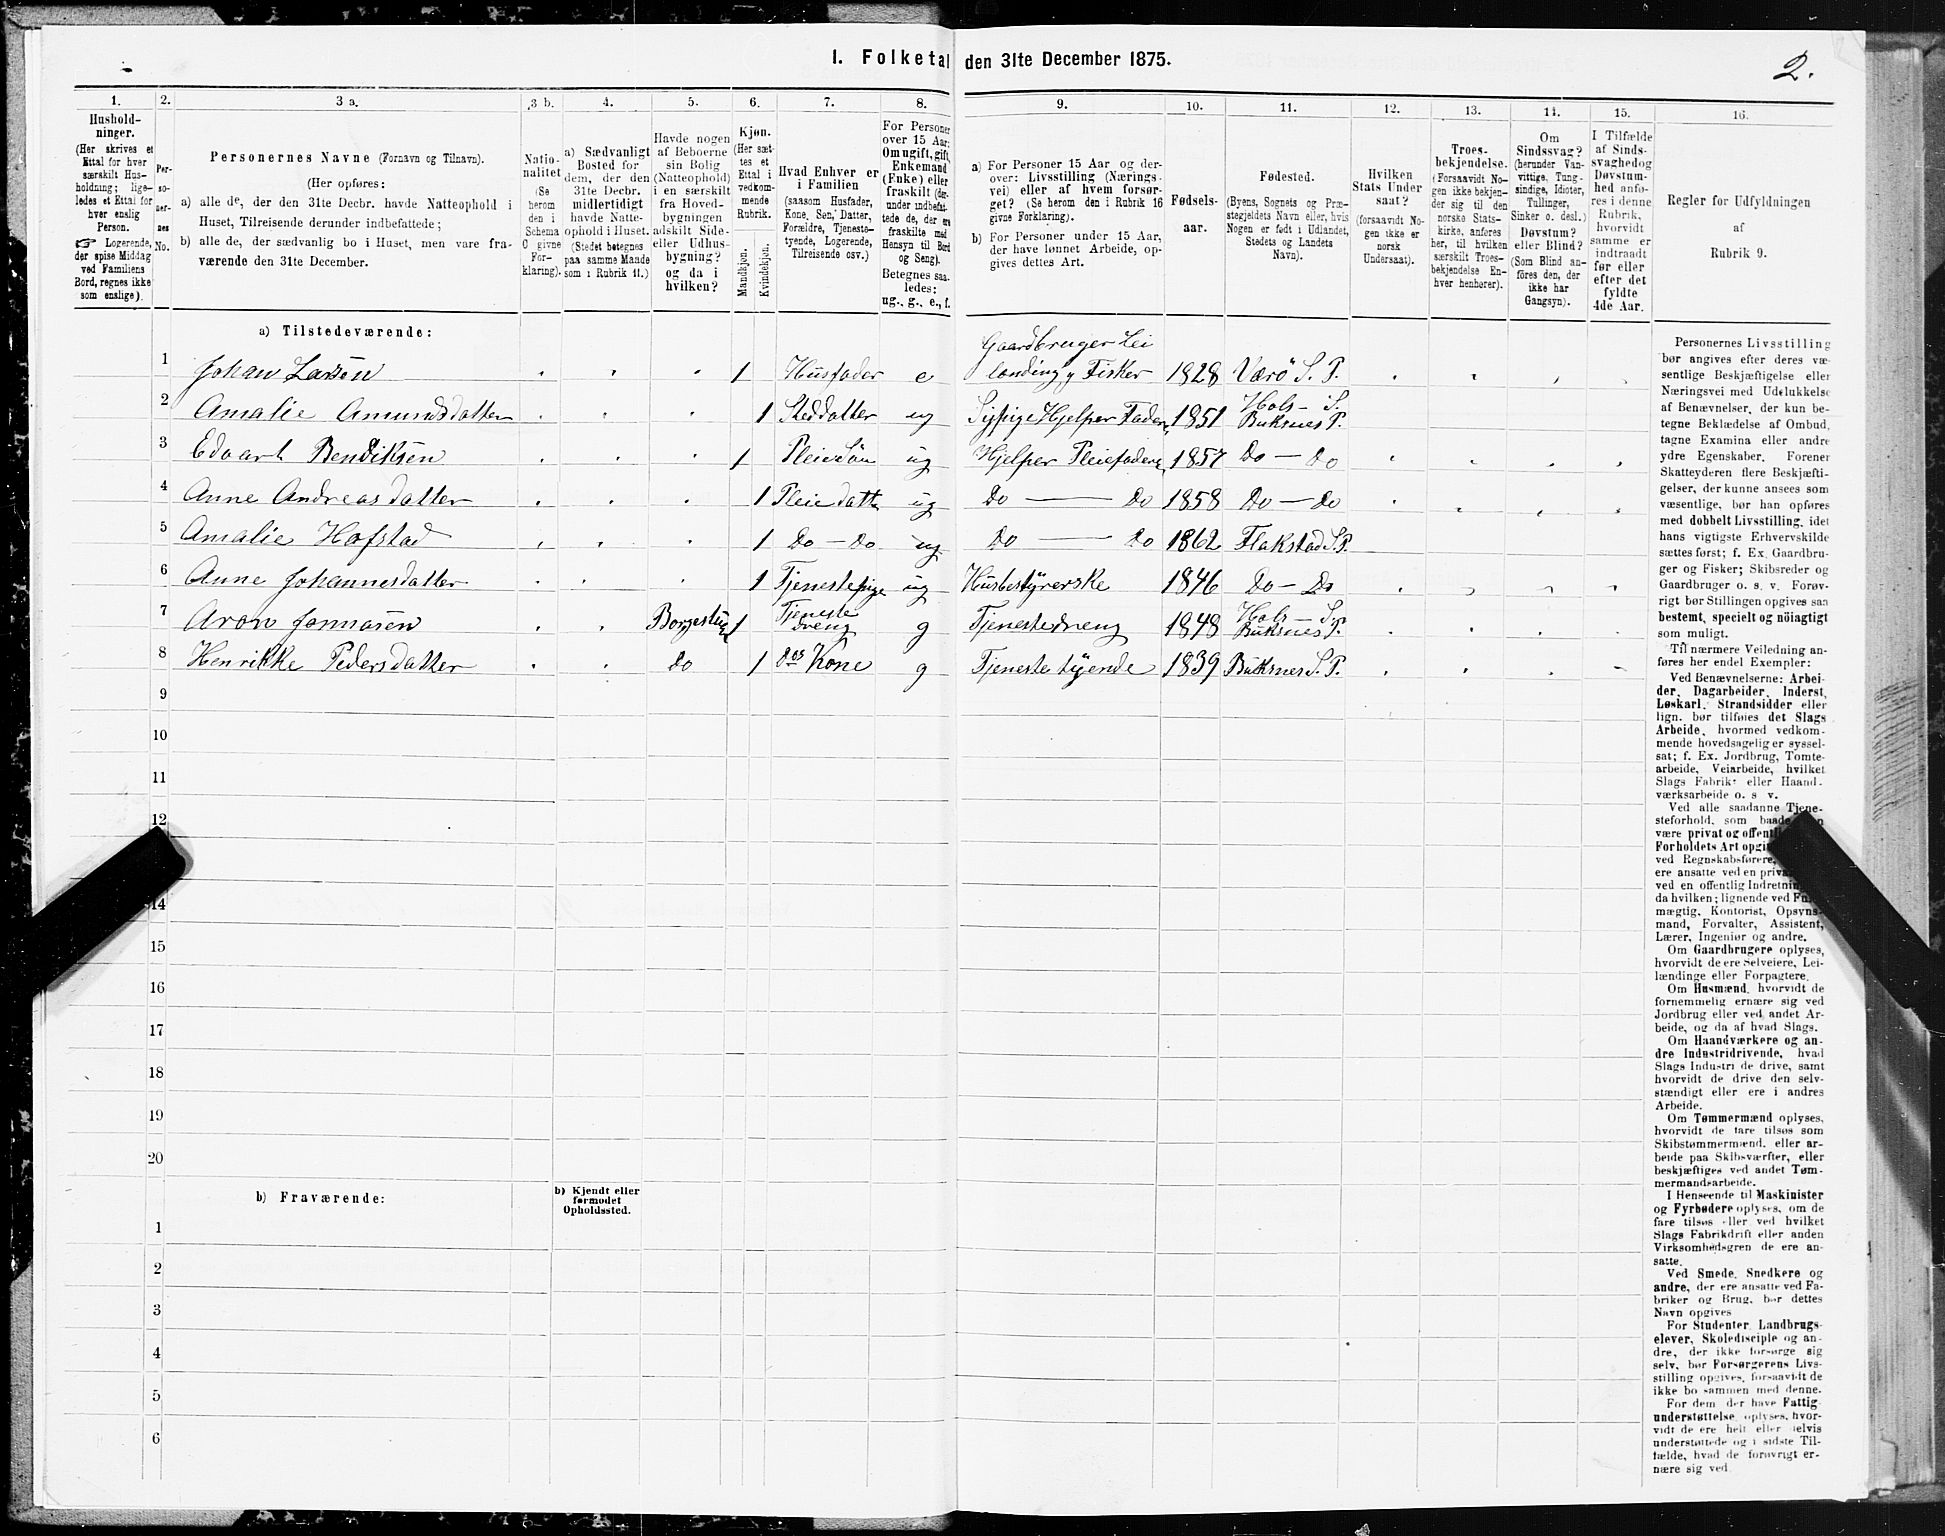 I. Folketal den 31te December 1875.
2.
1.
Hushold-
ninger.
(Her skrives et
Ettal for hver
særskilt Hus-
holdning; lige-
ledes et Ettal for
hver enslig
Person.
☞ Logerende,
der spise Middag
ved Familiens
Bord, regnes ikke
som enslige).
2.
Per-
so-
ner-
nes
No.
3 a.
Personernes Navne (Fornavn og Tilnavn).
(Her opføres:
a) alle de, der den 31te Decbr. havde Natteophold i
Huset, Tilreisende derunder indbefattede;
b) alle de, der sædvanlig bo i Huset, men vare fra-
værende den 31te December.
3 b.
Natio-
nalitet
(Se
herom
den i
Schema
O givne
For-
klaring).
4.
a) Sædvanligt
Bosted for
dem, der den
31te Decbr.
midlertidigt
havde Natte-
ophold i Huset.
(Stedet betegnes
paa samme Maade
som i Rubrik 11.)
5.
Havde nogen
af Beboerne
sin Bolig
(Natteophold)
i en særskilt
fra Hoved-
bygningen
adskilt Side-
eller Udhus-
bygning?
og da i
hvilken?
6.
Kjøn.
(Her sæt-
tes et
Ettal i
vedkom-
mende
Rubrik.
Mandkjøn.
Kvindekjøn.
7.
Hvad Enhver er
i Familien
(saasom Husfader,
Kone, Søn, Datter,
Forældre, Tjeneste-
tyende, Logerende,
Tilreisende osv.)
8.
For Personer
over 15 Aar:
Om ugift, gift,
Enkemand
(Enke) eller
fraskilt (der-
under indbefat-
tede de, der ere
fraskilte med
Hensyn til Bord
og Seng).
Betegnes saa-
ledes:
ug., g., e., f.
9.
a) For Personer 15 Aar og der-
over: Livsstilling (Nærings-
vei) eller af hvem forsør-
get? (Se herom den i Rubrik 16
givne Forklaring).
b) For Personer under 15 Aar,
der have lønnet Arbeide, op-
gives dettes Art.
10.
Fødsels-
aar.
11.
Fødested.
(Byens, Sognets og Præ-
stegjeldets Navn eller, hvis
Nogen er født i Udlandet,
Stedets og Landets
Navn).
12.
Hvilken
Stats Under
saat?
(forsaavidt No-
gen ikke er
norsk
Undersaat).
13.
Troes-
bekjendelse.
(Forsaavidt No-
gen ikke bekjen-
der sig til den
norske Stats-
kirke, anføres
her, til hvilken
særskilt Troes-
bekjendelse En-
hver henhører).
14.
Om
Sindssvag?
(herunder Van-
vittige, Tung-
sindige, Idioter,
Tullinger,
Sinker o. desl.)
Døvstum?
eller Blind?
(Som Blind an-
føres den, der
ikke har
Gangsyn).
15.
I Tilfælde
af Sinds-
svaghed og
Døvstum-
hed anfø-
res i denne
Rubrik,
hvorvidt
samme er
indtraadt
før eller
efter det
fyldte
4de Aar.
16.
Regler for Udfyldningen
af
Rubrik 9.
a) Tilstedeværende:
1 Johan Larsen 1 Husfader e Gaardbruger Lei
lænding og Fisker 1828 Værø S. P.
2 Amalie Amundsdatter 1 Steddatter ug Sypige Hjelper Faderen 1851 Hols - S.
Buksnes P.
3 Edvart Bendiksen 1 Pleiesøn ug Hjelper Pleiefaderen 1857 Do - Do
4 Anne Andreasdatter 1 Pleiedatter ug Do - Do 1858 Do - Do
5 Amalie Hofstad 1 Do - Do ug Do - Do 1862 Flakstad S.P.
6 Anne Johannesdatter 1 Tjenestepige ug Husbestyrerske 1846 Do - Do
7 Aron Jonnasen Borgestue 1 Tjeneste
dreng g Tjenestedreng 1848 Hols - S.
Buksnes P.
8 Henrikke Pedersdatter Do 1 Ds Kone g Tjenestetyende 1839 Buksnes S. P.
9
10
11
12
14
15
16
17
18
19
20
b) Fraværende:
b) Kjendt eller
formodet
Opholdssted.
1
2
3
4
5
6
Personernes Livsstilling
bør angives efter deres væ-
sentlige Beskjæftigelse eller
Næringsvei med Udelukkelse
af Benævnelser, der kun be-
tegne Beklædelse af Ombud,
tagne Examina eller andre
ydre Egenskaber. Forener
Skatteyderen flere Beskjæfti-
gelser, der kunne ansees som
væsentlige, bør han opføres
med dobbelt Livsstilling, idet
hans vigtigste Erhvervskilde
sættes først; f. Ex. Gaardbru-
ger og Fisker; Skibsreder og
Gaardbruger o. s. v. Forøv-
rigt bør Stillingen opgives saa
bestemt, specielt og nøiagtigt
som muligt.
Til nærmere Veiledning an-
føres her endel Exempler:
Ved Benævnelserne: Arbei-
der, Dagarbeider, Inderst,
Løskarl, Strandsidder eller
lign. bør tilføies det Slags
Arbeide, hvormed vedkom-
mende hovedsagelig er syssel-
sat; f. Ex. Jordbrug, Tomte-
arbeide, Veiarbeide, hvilket
Slags Fabrik- eller Haand-
værksarbeide o. s. v.
Ved alle saadanne Tjene-
steforhold, som baade
være privat og
Forholdets Art
ved Regnskabsførere,
ere ansatte ved en
ved en offentlig
da hvilken; lignende ved
mægtig, Kontorist, Opsyns-
mand, Forvalter, Assistent,
Lærer, Ingeniør og andre.
Om Gaardbrugere oplyses,
hvorvidt de ere Selveiere, Lei-
lændinge eller Forpagtere.
Om Husmænd, hvorvidt de
fornemmelig ernære sig ved
Jordbrug eller ved andet Ar-
beide, og da af hvad Slags.
Om Haandværkere og an-
dre Industridrivende, hvad
Slags Industri de drive, samt
hvorvidt de drive den selv-
stændigt eller ere i andres
Arbeide.
Om Tømmermænd oplyses,
hvorvidt de fare tilsøs som
Skibstømmermænd, eller ar-
beide paa Skibsværfter, eller
beskjæftiges ved andet Tøm-
mermandsarbeide.
I Henseende til Maskinister
og Fyrbødere oplyses, om de
fare tilsøs eller ved hvilket
Slags Fabrikdrift eller anden
Virksomhedsgren de ere an-
satte.
Ved Smede, Snedkere og
andre, der ere ansatte ved Fa-
briker og Brug, bør dettes
Navn opgives
For Studenter, Landbrugs-
elever, Skoledisciple og an-
dre, der ikke forsørge sig
selv, bør Forsørgerens Livs-
stilling opgives, forsaavidt de
ikke bo sammen med denne.
For dem, der have Fattig-
understøttelse, oplyses, hvor-
vidt de ere helt eller delvis
understøttede og i sidste Til-
fælde, hvad de forøvrigt er-
nære sig ved.